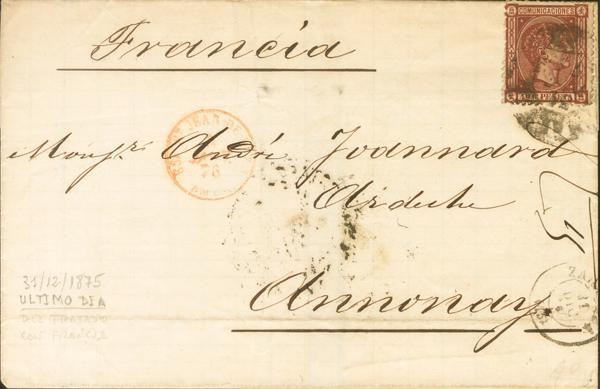 Francia
COMUNICACIONES
UNA PESETA
ST JEAN-DE
76
Monsr. André Joannard
Ardeche
15
Annonay
ZAR
31
31/12/1875
ULTIMO DIA
DEL TRATADO
CON FRANCIA